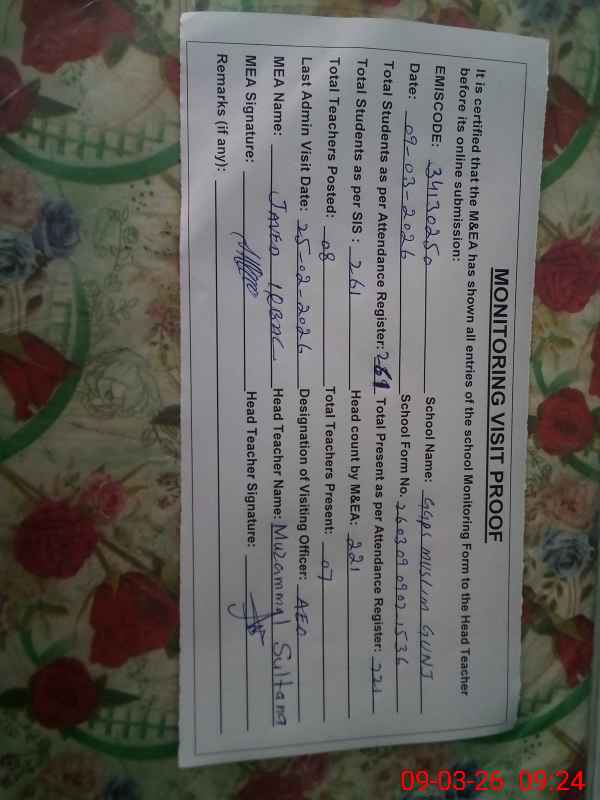 MONITORING VISIT PROOF
It is certified that the M&EA has shown all entries of the school Monitoring Form to the Head Teacher
before its online submission:
EMISCODE: 34130250 School Name: GGPS MUSLIM GUNJ
Date: 09-03-2026 School Form No. 260309 0902 1536
Total Students as per Attendance Register: 261 Total Present as per Attendance Register: 221
Total Students as per SIS : 261 Head count by M&EA: 221
Total Teachers Posted: 08 Total Teachers Present: 07
Last Admin Visit Date: 25-02-2026 Designation of Visiting Officer: AEO
MEA Name: JAVED IQBAL Head Teacher Name: Muzammal Sultana
MEA Signature: Head Teacher Signature:
Remarks (if any):
09-03-26 09:24